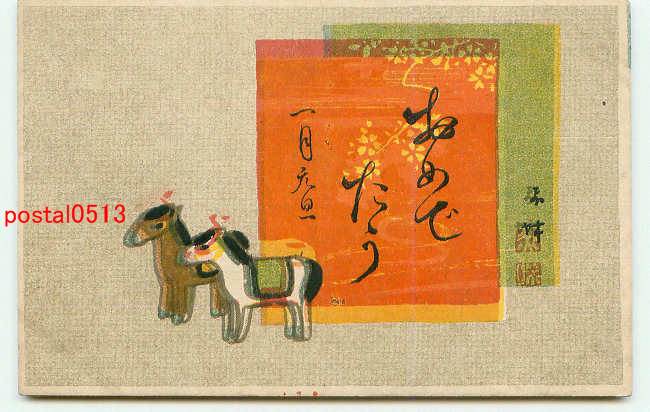 おめで
たう
一月元旦
postal0513